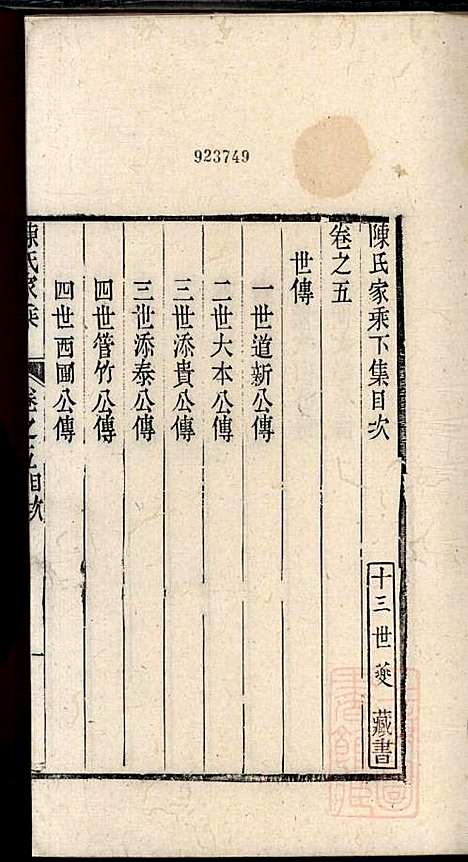 923749
陳氏家乘下集目次
十三世夔藏書
卷之五
世傳
一世道新公傳
二世大本公傳
三世添貴公傳
三世添泰公傳
四世管竹公傳
四世西圃公傳
陳氏家乘
卷之五目次
一